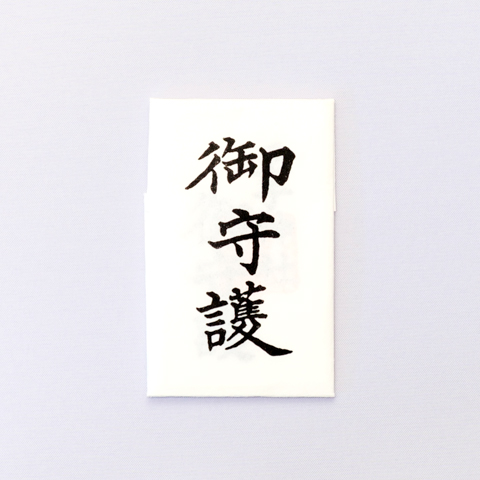 御守護